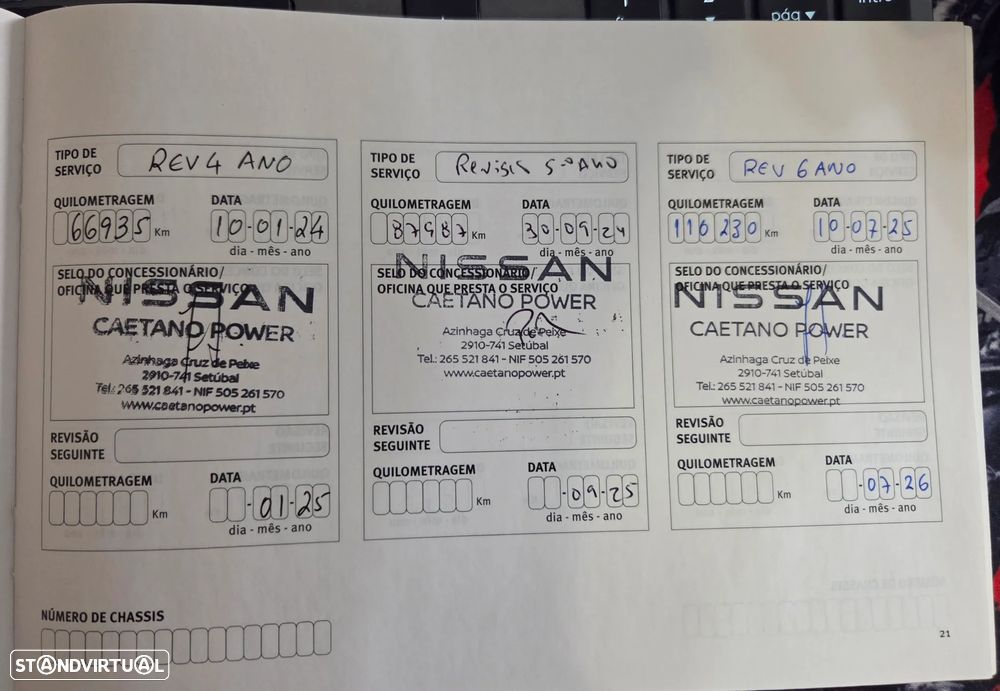 pág
TIPO DE
SERVIÇO
REV 4 ANO
QUILOMETRAGEM
DATA
66935 Km
10-01-24
dia - mês - ano
SELO DO CONCESSIONÁRIO/
OFICINA QUE PRESTA O SERVIÇO
NISSAN
CAETANO POWER
Azinhaga Cruz de Peixe
2910-741 Setúbal
Tel.: 265 521 841 - NIF 505 261 570
www.caetanopower.pt
REVISÃO
SEGUINTE
QUILOMETRAGEM
DATA
Km
-01-25
dia - mês - ano
TIPO DE
SERVIÇO
5º ANO
QUILOMETRAGEM
DATA
87987 Km
30-09-24
dia - mês - ano
SELO DO CONCESSIONÁRIO/
OFICINA QUE PRESTA O SERVIÇO
NISSAN
CAETANO POWER
Azinhaga Cruz de Peixe
2910-741 Setúbal
Tel.: 265 521 841 - NIF 505 261 570
www.caetanopower.pt
REVISÃO
SEGUINTE
QUILOMETRAGEM
DATA
Km
-09-25
dia - mês - ano
TIPO DE
SERVIÇO
REV 6 ANO
QUILOMETRAGEM
DATA
116230 Km
10-07-25
dia - mês - ano
SELO DO CONCESSIONÁRIO/
OFICINA QUE PRESTA O SERVIÇO
NISSAN
CAETANO POWER
Azinhaga Cruz de Peixe
2910-741 Setúbal
Tel.: 265 521 841 - NIF 505 261 570
www.caetanopower.pt
REVISÃO
SEGUINTE
QUILOMETRAGEM
DATA
Km
-07-26
dia - mês - ano
NÚMERO DE CHASSIS
21
STANDVIRTUAL